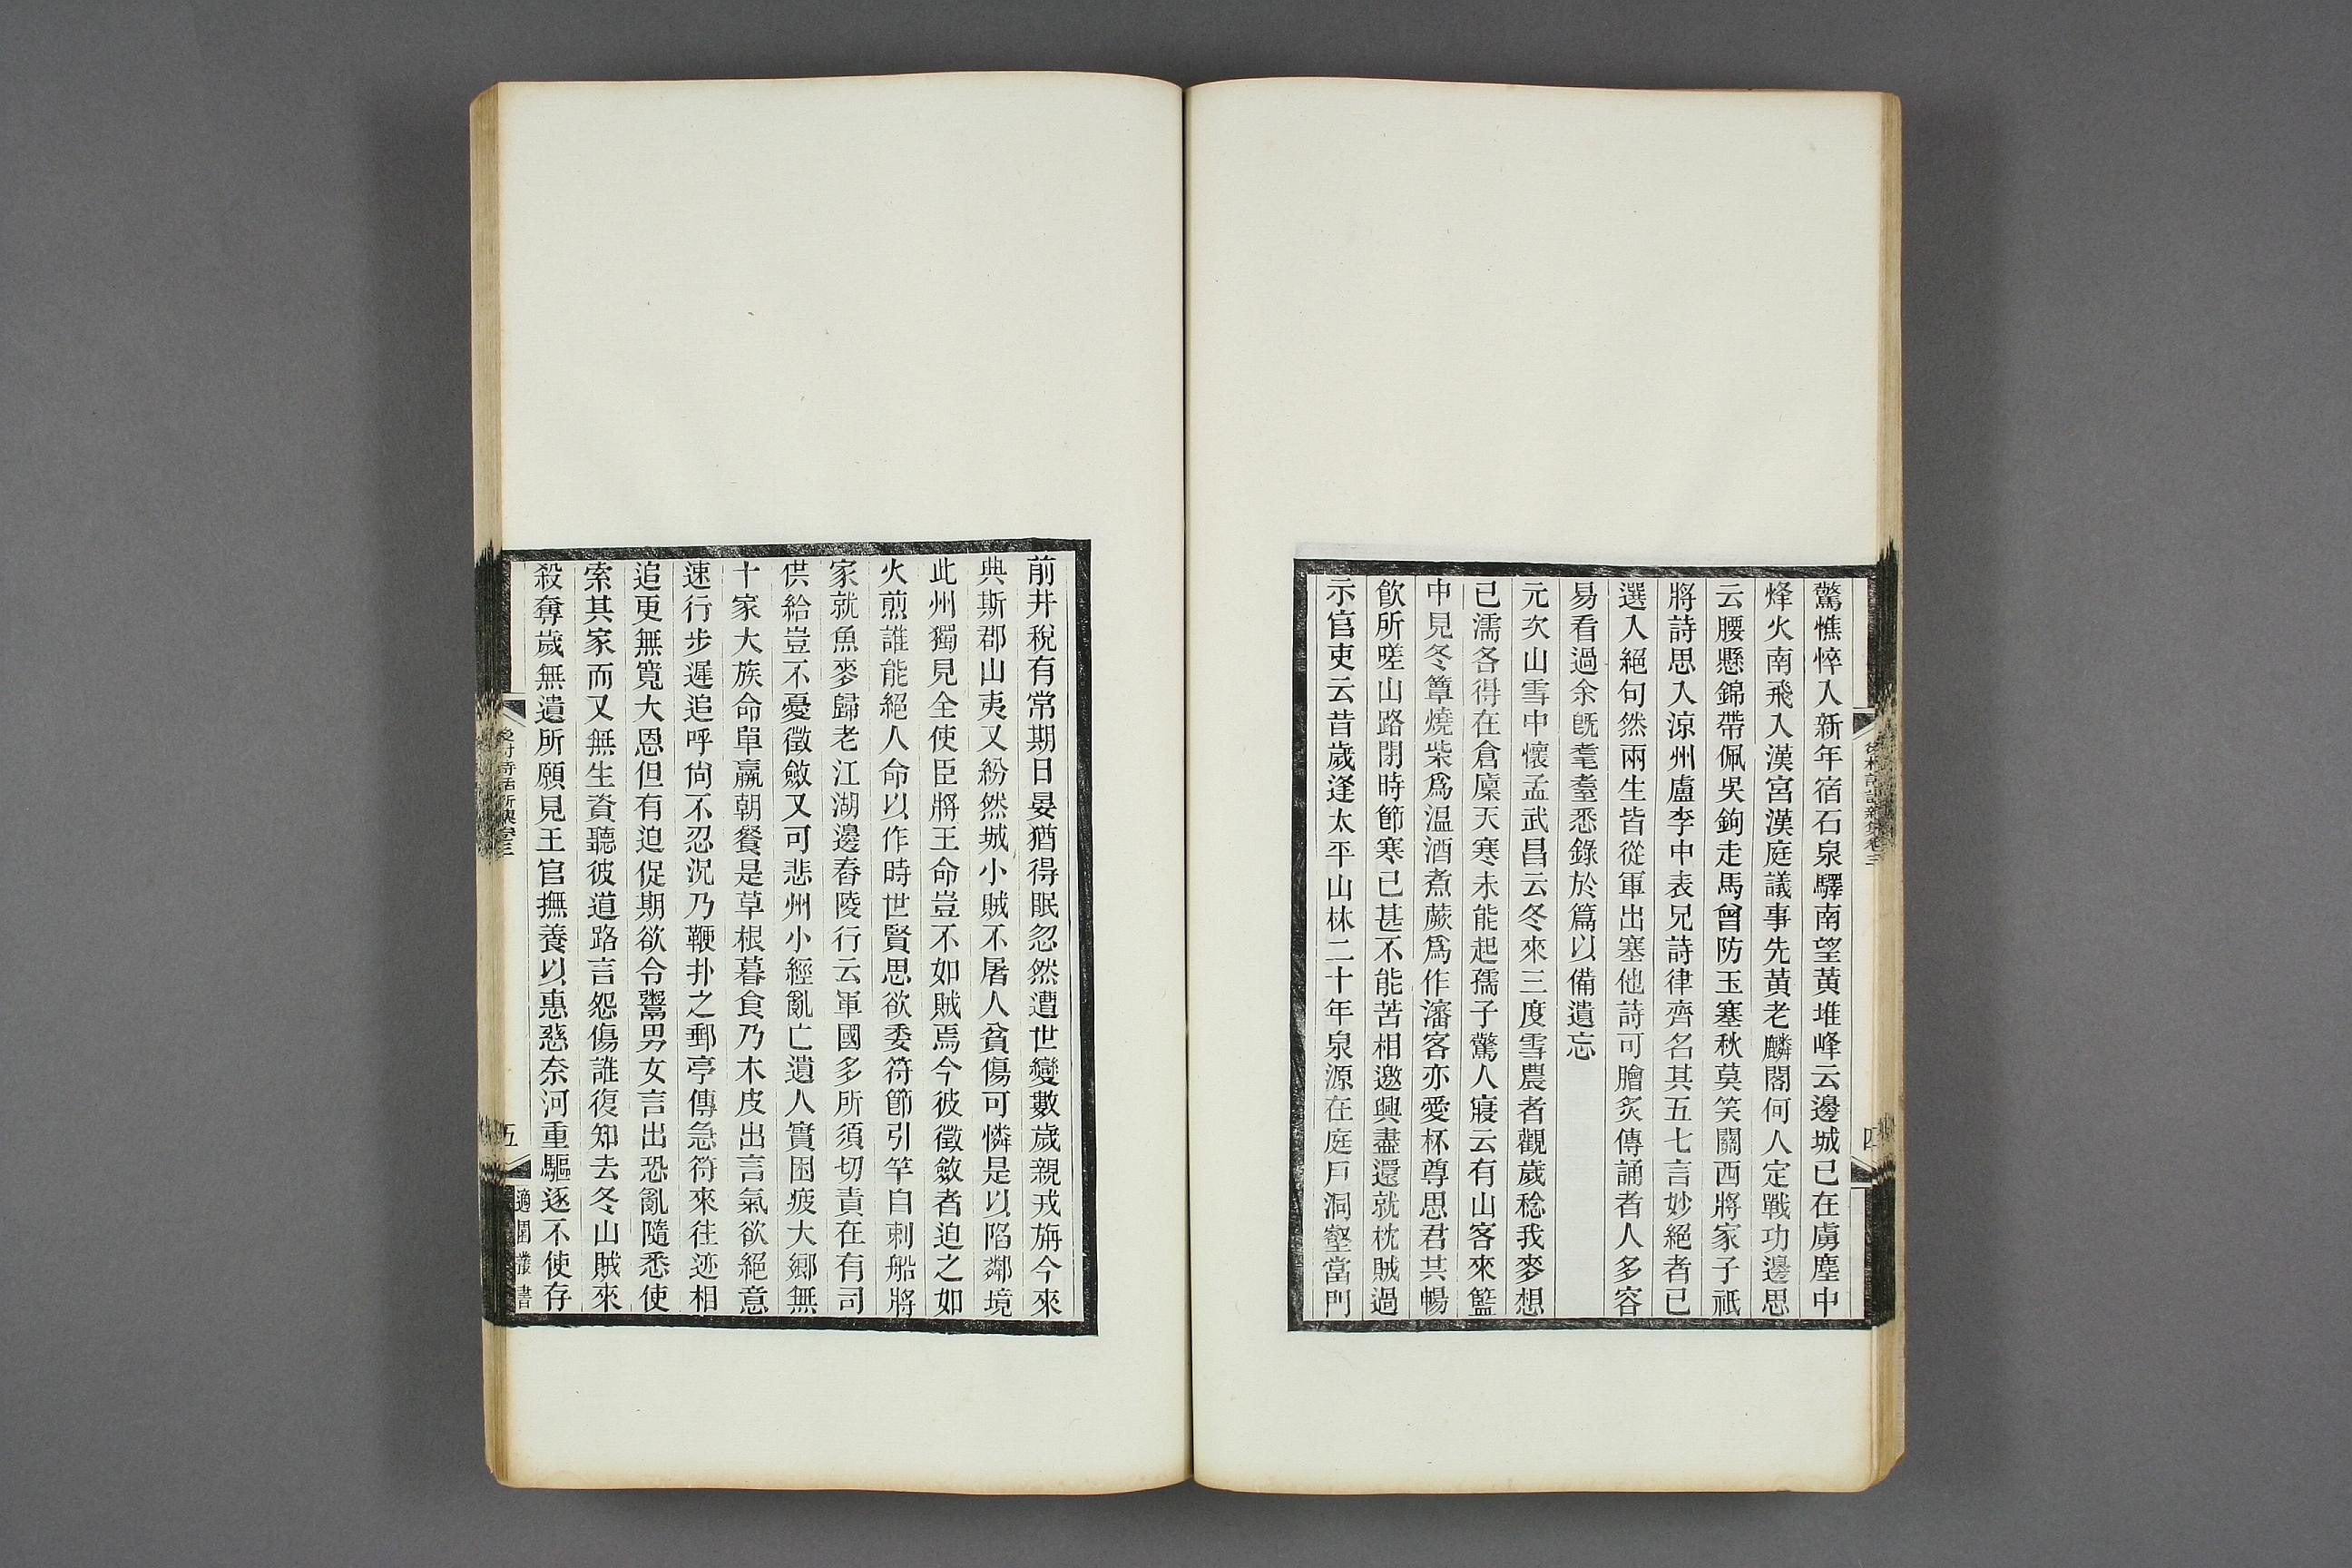 驚憔悴入新年宿石泉驛南望黃堆峰云邊城已在虜塵中
烽火南飛入漢宮漢庭議事先黃老麟閣何人定戰功邊思
云腰懸錦帶佩吳鉤走馬曾防玉塞秋莫笑關西將家子祇
將詩思入涼州盧李中表兄詩律齊名其五七言妙絕者已
選入絕句然兩生皆從軍出塞他詩可膾炙傳誦者人多容
易看過余旣耄耋悉錄於篇以備遺忘
元次山雪中懷孟武昌云冬來三度雪農者觀歲稔我麥想
已濡各得在倉廩天寒未能起孺子驚人寢云有山客來籃
中見冬簟燒柴爲温酒煮蕨爲作瀋客亦愛杯尊思君共暢
飮所嗟山路閉時節寒已甚不能苦相邀興盡還就枕賊過
示官吏云昔歲逢太平山林二十年泉源在庭戸洞壑當門
前井稅有常期日晏猶得眠忽然遭世變數歲親戎旃今來
典斯郡山夷又紛然城小賊不屠人貧傷可憐是以陷鄰境
此州獨見全使臣將王命豈不如賊焉今彼徵斂者迫之如
火煎誰能絕人命以作時世賢思欲委符節引竿自刺船將
家就魚麥歸老江湖邊舂陵行云軍國多所須切責在有司
供給豈不憂徵斂又可悲州小經亂亡遺人實困疲大鄉無
十家大族命單羸朝餐是草根暮食乃木皮出言氣欲絕意
速行步遲追呼尙不忍況乃鞭扑之郵亭傳急符來往迹相
追更無寬大恩但有迫促期欲令鬻男女言出恐亂隨悉使
索其家而又無生資聽彼道路言怨傷誰復知去冬山賊來
殺奪歲無遺所願見王官撫養以惠慈奈河重驅逐不使存
後村詩話新集卷三
四
後村詩話新集卷三
五
適園叢書